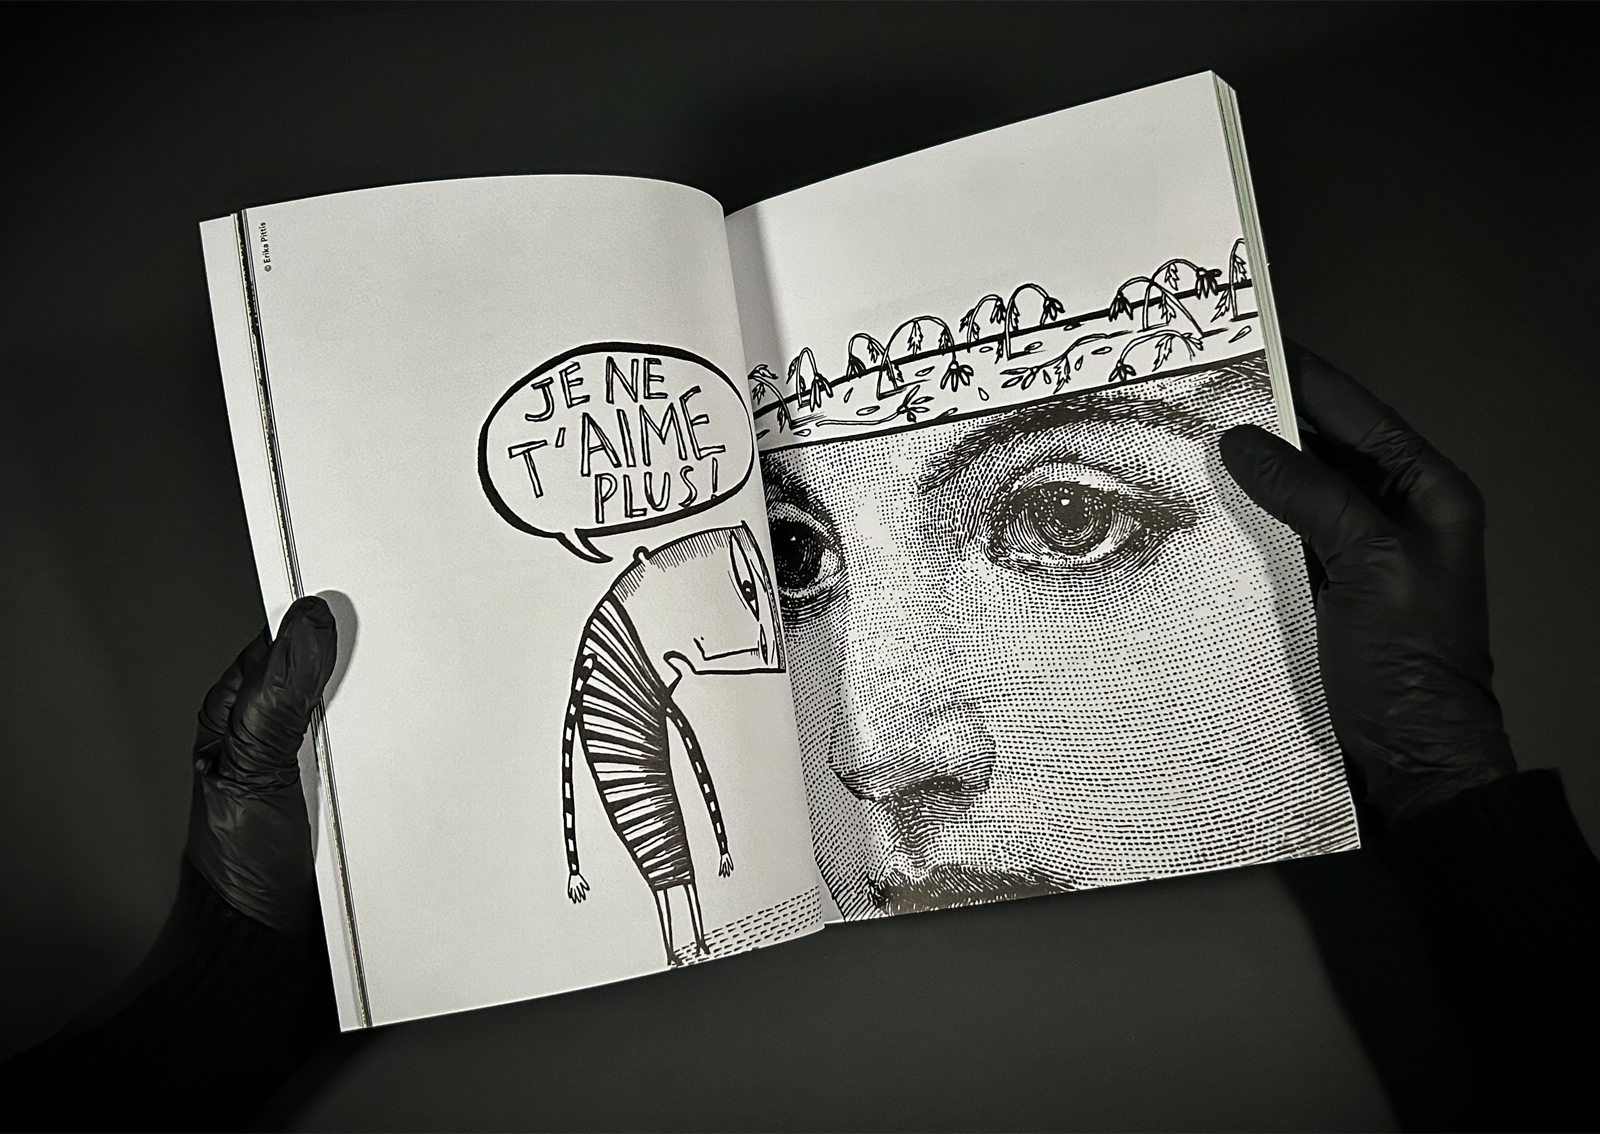 © Erika Pittis
JE NE
T'AIME
PLUS!